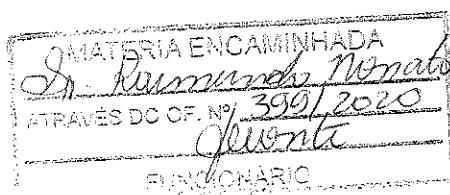 MATÉRIA ENCAMINHADA
Sr. Raimundo Nonato
ATRAVÉS DO OF. Nº 399/2020
FUNCIONÁRIO